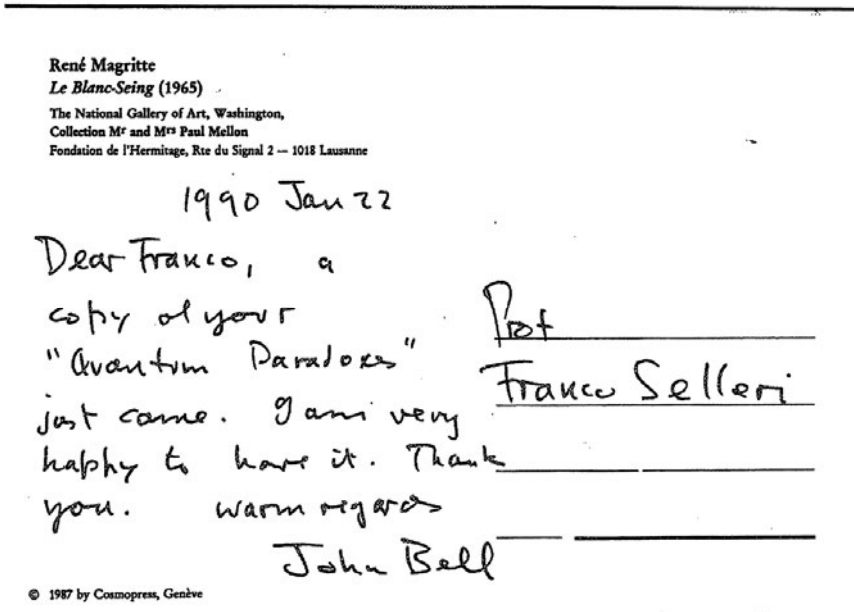 René Magritte
Le Blanc-Seing (1965)
The National Gallery of Art, Washington,
Collection Mr and Mrs Paul Mellon
Fondation de l'Hermitage, Rte du Signal 2 — 1018 Lausanne
1990 Jan 22
Dear Franco, a
copy of your
"Quantum Paradoxes"
just came. I am very
happy to have it. Thank
you. warm regards
John Bell
Prof
Franco Selleri
© 1987 by Cosmopress, Genève